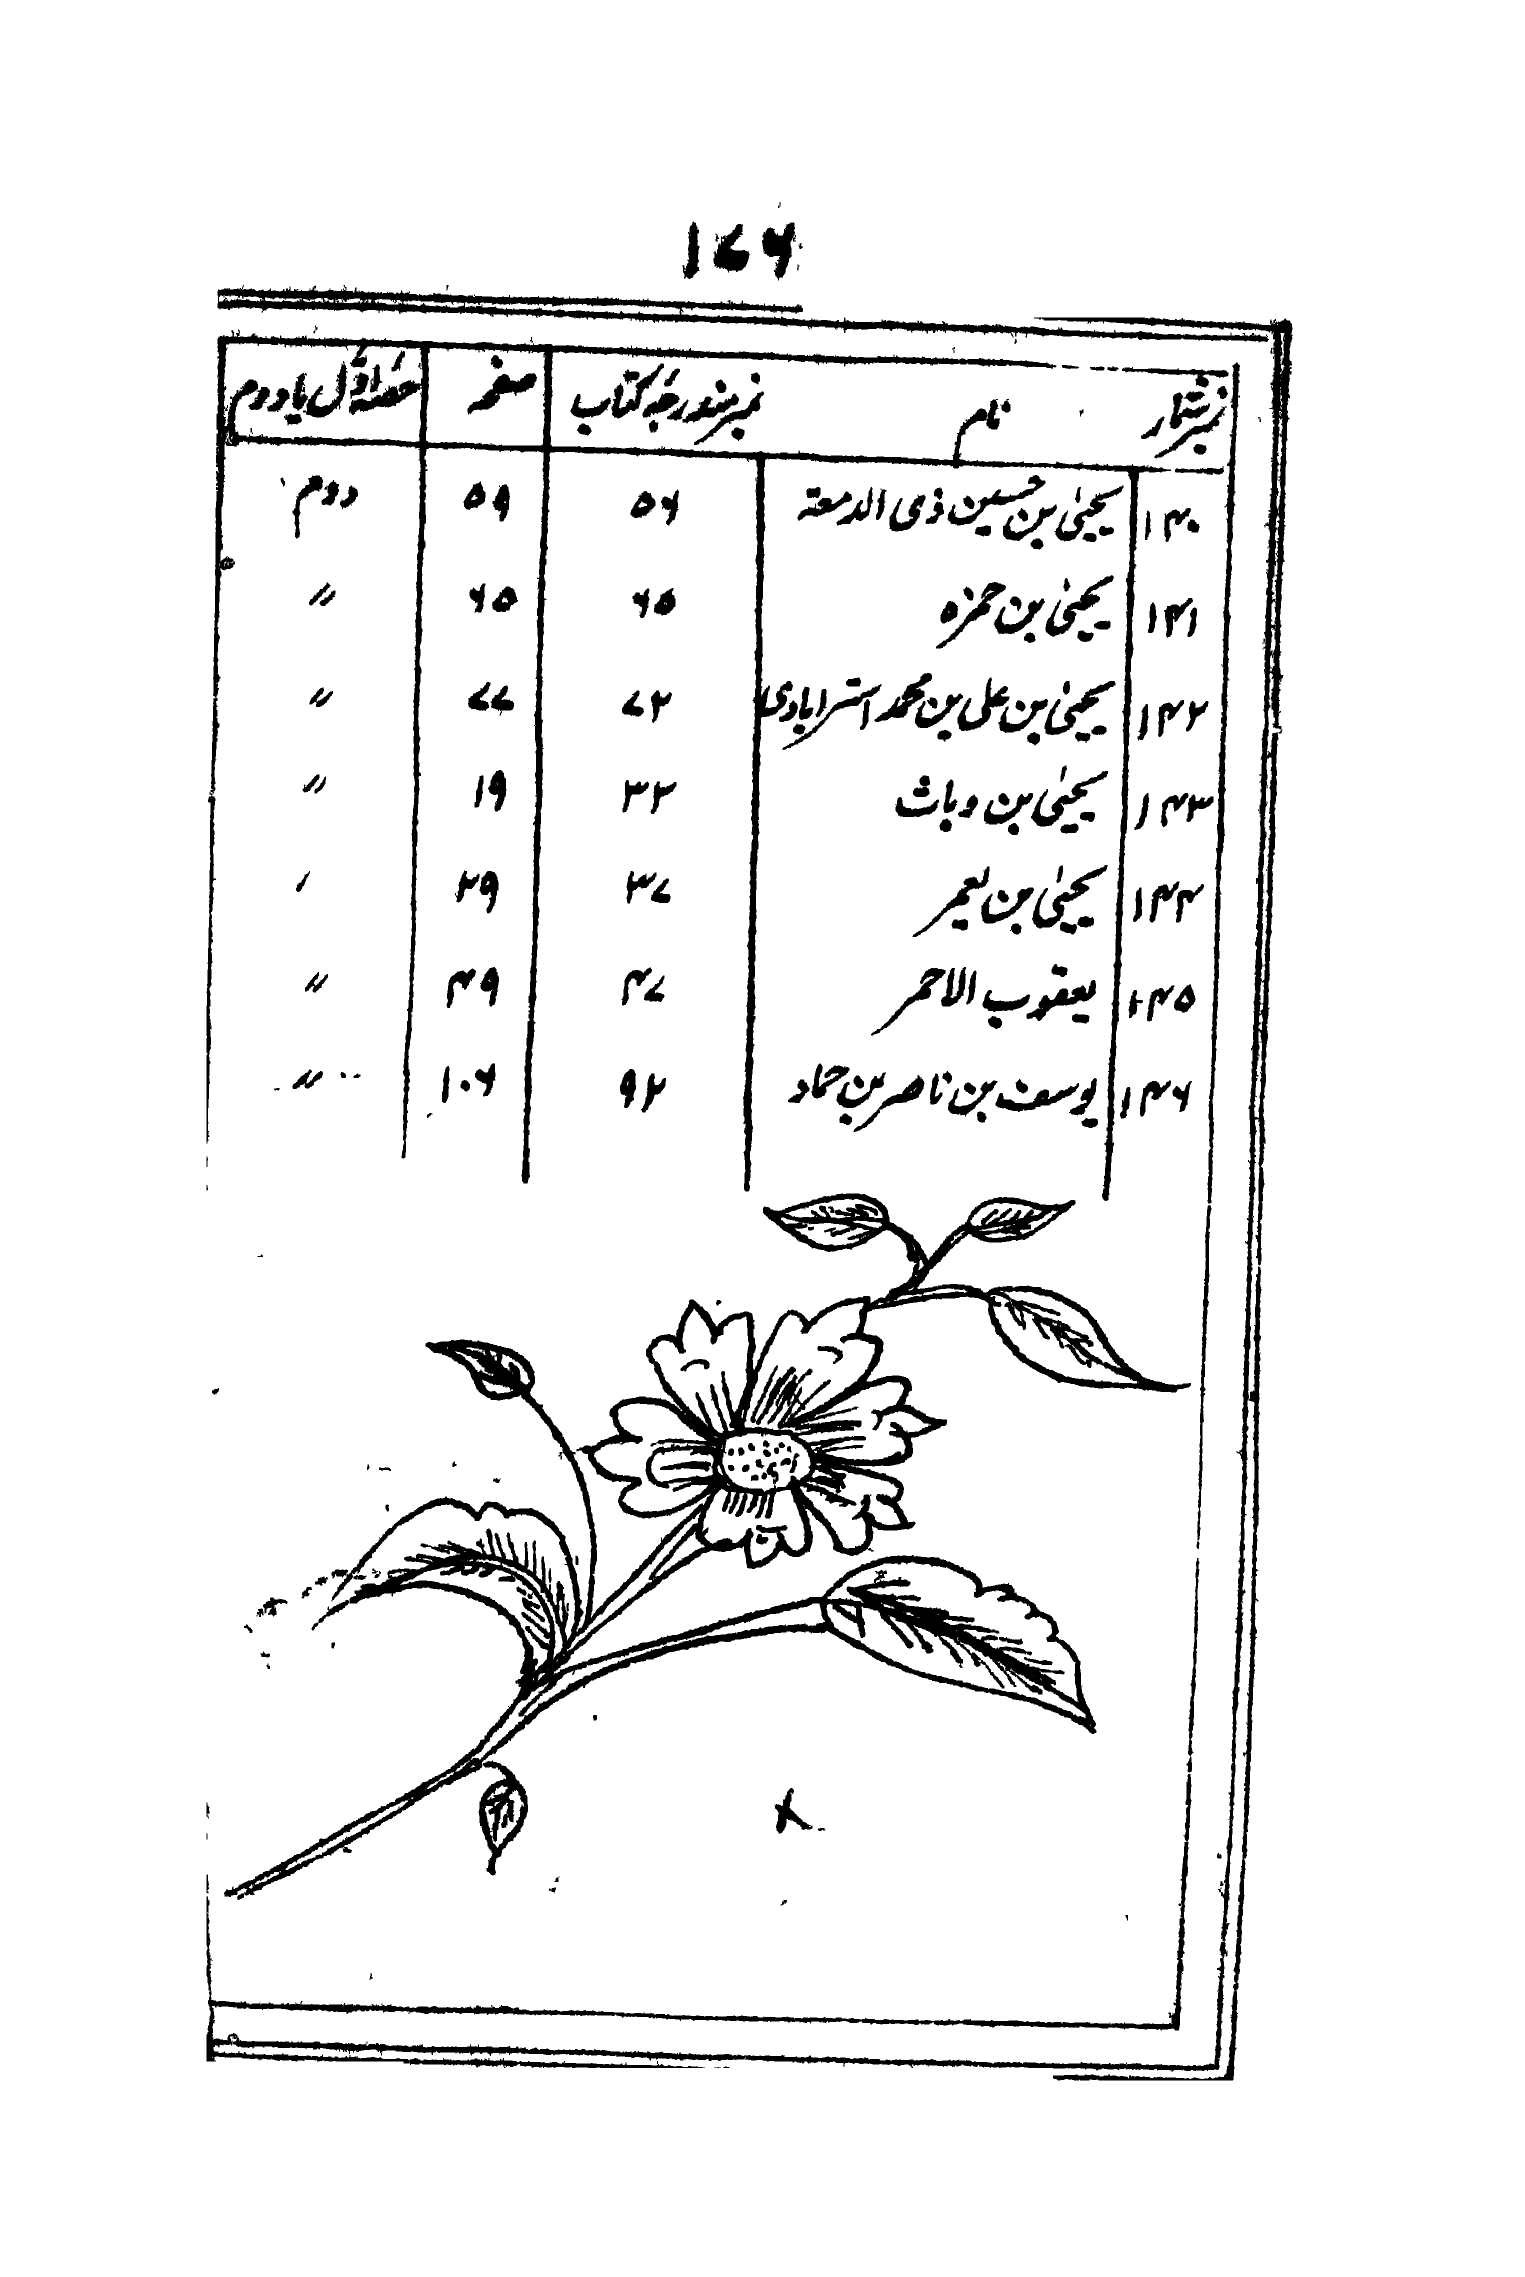 ۱۷۶
نمبر شمار نام نمبر مندرجہ کتاب صفحہ حصہ اوّل یا دوم
۱۴۰ یحییٰ بن حسین ذی الدمعۃ ۵۶ ۵۹ دوم
۱۴۱ یحییٰ بن حمزہ ۶۵ ۶۵ 〃
۱۴۲ یحییٰ بن علی بن محمد استرابادی ۷۲ ۷۷ 〃
۱۴۳ یحییٰ بن وباث ۳۲ ۱۹ 〃
۱۴۴ یحییٰ بن یعمر ۳۷ ۲۹ 〃
۱۴۵ یعقوب الاحمر ۴۷ ۴۹ 〃
۱۴۶ یوسف بن ناصر بن حماد ۹۲ ۱۰۶ 〃